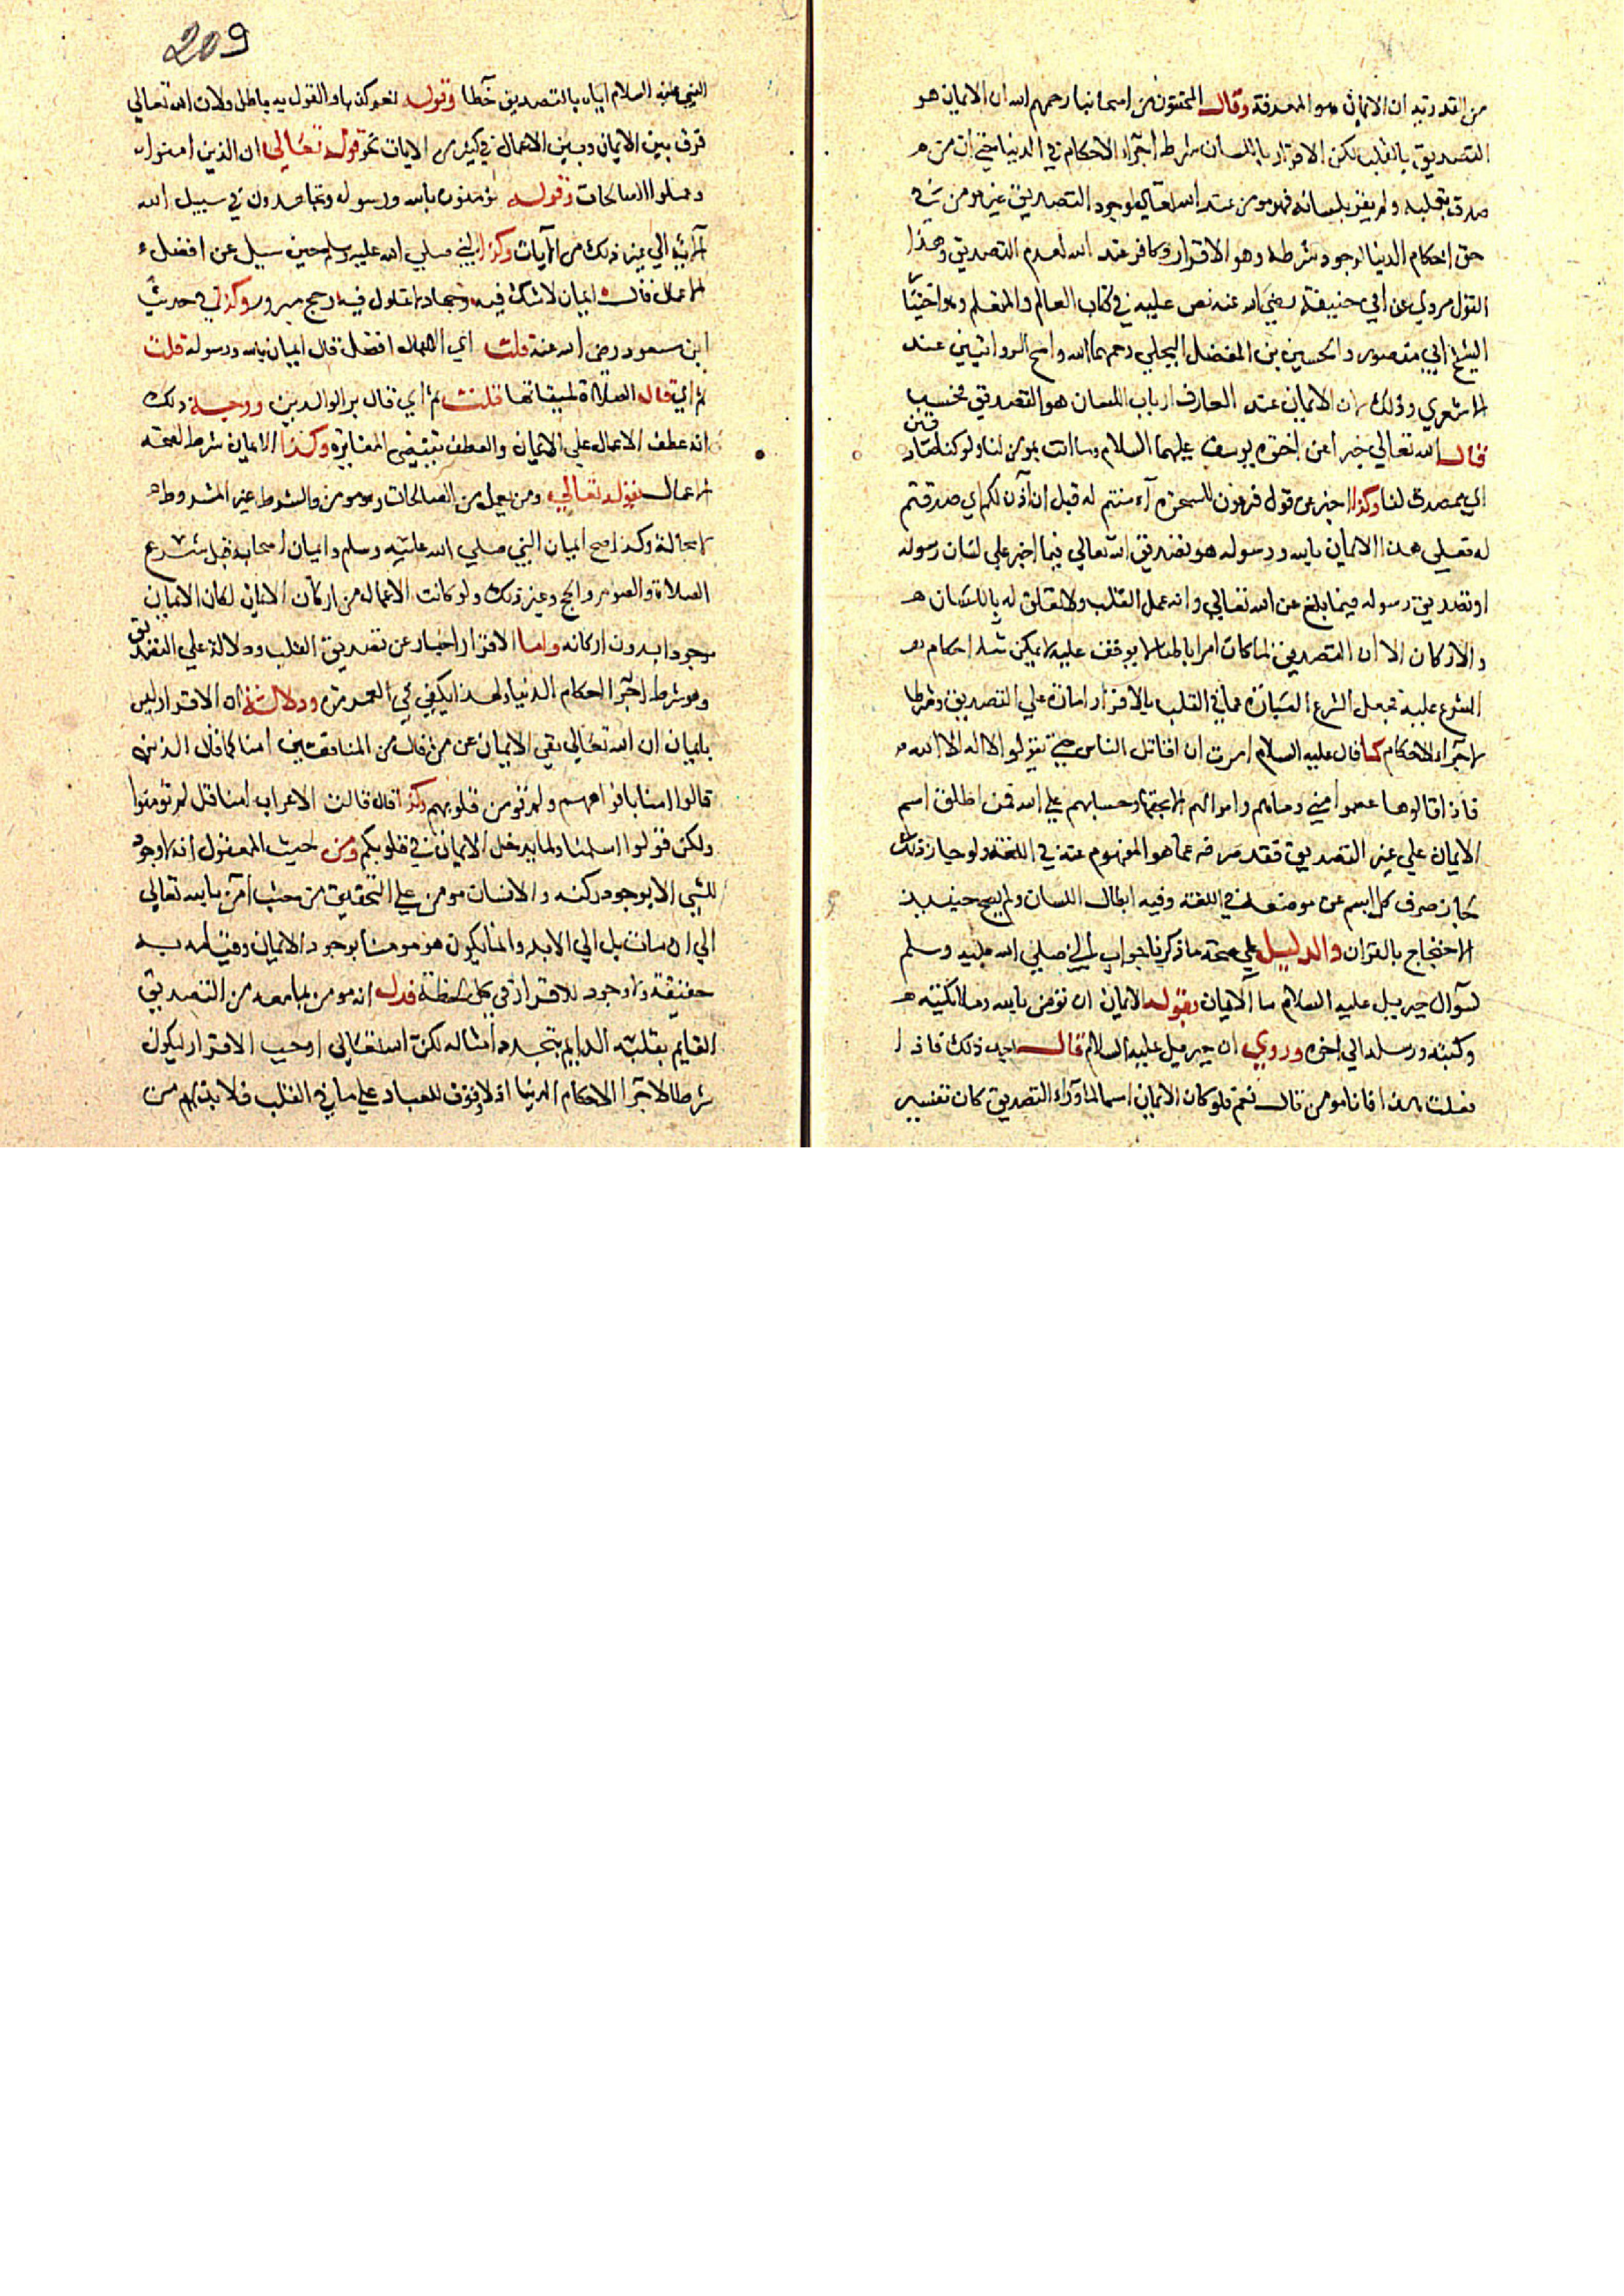 من القدرية ان الايمان هو المعرفة وقال المحققون من اصحابنا رحمهم الله ان الايمان هو
التصديق بالقلب لكن الاقرار باللسان شرط اجراء الاحكام في الدنيا حتي ان من
صدق بقلبه ولم يقر بلسانه فهو مومن عند الله تعالي لوجود التصديق غير مومن في
حق احكام الدنيا لوجود شرطه وهو الاقرار وكافر عند الله لعدم التصديق وهذا
القول مروي عن ابي حنيفة رضي الله عنه نص عليه في كتاب العالم والمتعلم وهو اختيار
الشيخ ابي منصور والحسين بن الفضل البجلي رحمهما الله واصح الروايتين عند
الاشعري وذلك لان الايمان عند العارف ارباب اللسان هو التصديق فحسب
قال الله تعالي خبرا عن اخوة يوسف عليهما السلام وما انت بمومن لنا ولو كنا صادقين
اي بمصدق لنا وكذا اخبر عن قول فرعون للسحرة آمنتم له قبل ان آذن لكم اي صدقتم
له فعلي هذا الايمان بالله ورسوله هو تصديق الله تعالي فيما اخبر علي لسان رسوله
او تصديق رسوله فيما بلغ عن الله تعالي وانه عمل القلب ولا تعلق له باللسان
والاركان الا ان التصديق لما كان امرا باطنا لا يوقف عليه لا يمكن بناء احكام
الشرع عليه فجعل الشرع العبارة عما في القلب بالاقرار امارة علي التصديق وشرطا
لاجراء الاحكام كما قال عليه السلام امرت ان اقاتل الناس حتي يقولوا لا اله الا الله
فاذا قالوها عصموا مني دماءهم واموالهم الا بحقها وحسابهم علي الله فمن اطلق اسم
الايمان علي غير التصديق فقد صرفه عما هو المفهوم عنه في اللغة ولو جاز ذلك
لجاز صرف كل اسم عن موضعه في اللغة وفيه ابطال اللسان ولم يصح حينيذ
الاحتجاج بالقران والدليل علي صحة ما ذكرنا جواب النبي صلي الله عليه وسلم
لسوال جبريل عليه السلام ما الايمان بقوله الايمان ان تؤمن بالله وملائكته
وكتبه ورسله الي اخره وروي ان جبريل عليه السلام قال بعد ذلك فاذا
فعلت هذا فانا مومن قال نعم فلو كان الايمان اسما لما وراء التصديق كان تفسير
209
النبي عليه السلام اياه بالتصديق خطا وقوله نعم كذبا والقول به باطل ولان الله تعالي
فرق بين الايمان وبين الاعمال في كثير من الايات نحو قوله تعالي ان الذين امنوا
وعملوا الصالحات وقوله تؤمنون بالله ورسوله وتجاهدون في سبيل الله
الاية الي غير ذلك من الايات وكذا النبي صلي الله عليه وسلم حين سيل عن افضل
الاعمال فقال ايمان لا شك فيه وجهاد لا غلول فيه وحج مبرور وكذا في حديث
ابن مسعود رضي الله عنه قلت اي الاعمال افضل قال ايمان بالله ورسوله قلت
ثم اي قال الصلاة لميقاتها قلت ثم اي قال بر الوالدين ووجه ذلك
انه عطف الاعمال علي الايمان والعطف يقتضي المغايرة وكذا الايمان شرط لصحة
الاعمال لقوله تعالي ومن يعمل من الصالحات وهو مومن والشرط غير المشروط
لا محالة وكذا صح ايمان النبي صلي الله عليه وسلم وايمان اصحابه قبل شرع
الصلاة والصوم والحج وغير ذلك ولو كانت الاعمال من اركان الايمان لكان الايمان
موجودا بدون اركانه واما الاقرار اخبار عن تصديق القلب ودلالة علي التصديق
وهو شرط اجراء احكام الدنيا ولهذا يكفي في العمر مرة ودلالة ان الاقرار ليس
بايمان ان الله تعالي نفي الايمان عن من قال من المنافقين امنا كما قال الذين
قالوا امنا بافواههم ولم تومن قلوبهم وكذا قال قالت الاعراب امنا قل لم تومنوا
ولكن قولوا اسلمنا ولما يدخل الايمان في قلوبكم ومن حيث المعقول انه لا وجود
للشي الا بوجود ركنه والانسان مومن علي التحقيق من حيث آمن بالله تعالي
الي ان مات بل الي الابد وانما يكون مومنا بوجود الايمان وقيامه به
حقيقة ولا وجود للاقرار في كل لحظة فدل انه مومن بما معه من التصديق
القايم بقلبه الدايم بتجدد امثاله لكن الله تعالي اوجب الاقرار ليكون
شرطا لاجراء الاحكام الدنيا اذ لا وقوف للعباد علي ما في القلب فلا بد لهم من